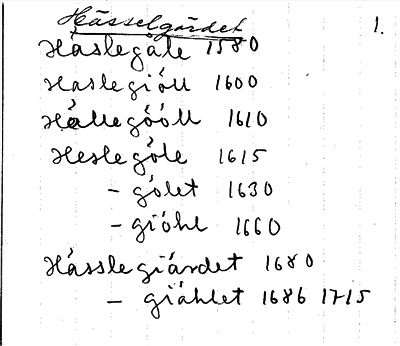 Hässelgärdet 1.
Håslegåle 1580
Haslegiöll 1600
Hållegööll 1610
Heslegöle 1615
- gölet 1630
- giöhl 1660
Hässlegiärdet 1680
- giählet 1686 1715